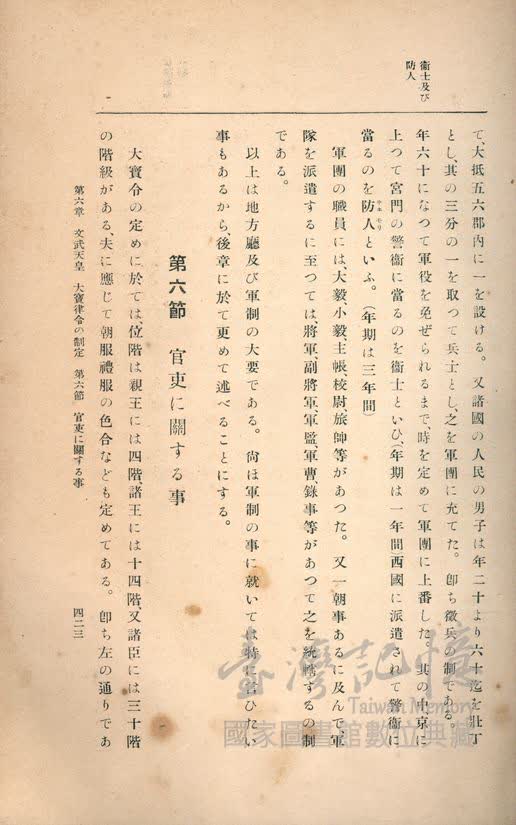 衞士及び
防人
て、大抵五六郡內に一を設ける。又諸國の人民の男子は年二十より六十迄を壯丁
とし、其の三分の一を取つて兵士とし、之を軍團に充てた。卽ち徵兵の制である。
年六十になつて軍役を免ぜられるまで、時を定めて軍團に上番した。其の中京に
上つて宮門の警衞に當るのを衞士といひ、年期は一年間西國に派遣されて警衞に
當るのを防人といふ。（年期は三年間）
サキモリ
軍團の職員には、大毅小毅、主帳校尉、旅師等があつた。又一朝事あるに及んで、軍
隊を派遣するに至つては、將軍、副將軍、軍監、軍曹、錄事等があつて之を統轄するの制
である。
以上は地方廳及び軍制の大要である。尙ほ軍制の事に就いては特に言ひたい
事もあるから、後章に於て更めて述べることにする。
第六節 官吏に關する事
大寶令の定めに於ては位階は親王には四階、諸王には十四階、又諸臣には三十階
の階級がある、夫に應じて朝服禮服の色合なども定めてある。卽ち左の通りであ
第六章 文武天皇 大寶律令の制定 第六節 官吏に關する事
四二三
臺灣記憶
Taiwan Memory
國家圖書館數位典藏